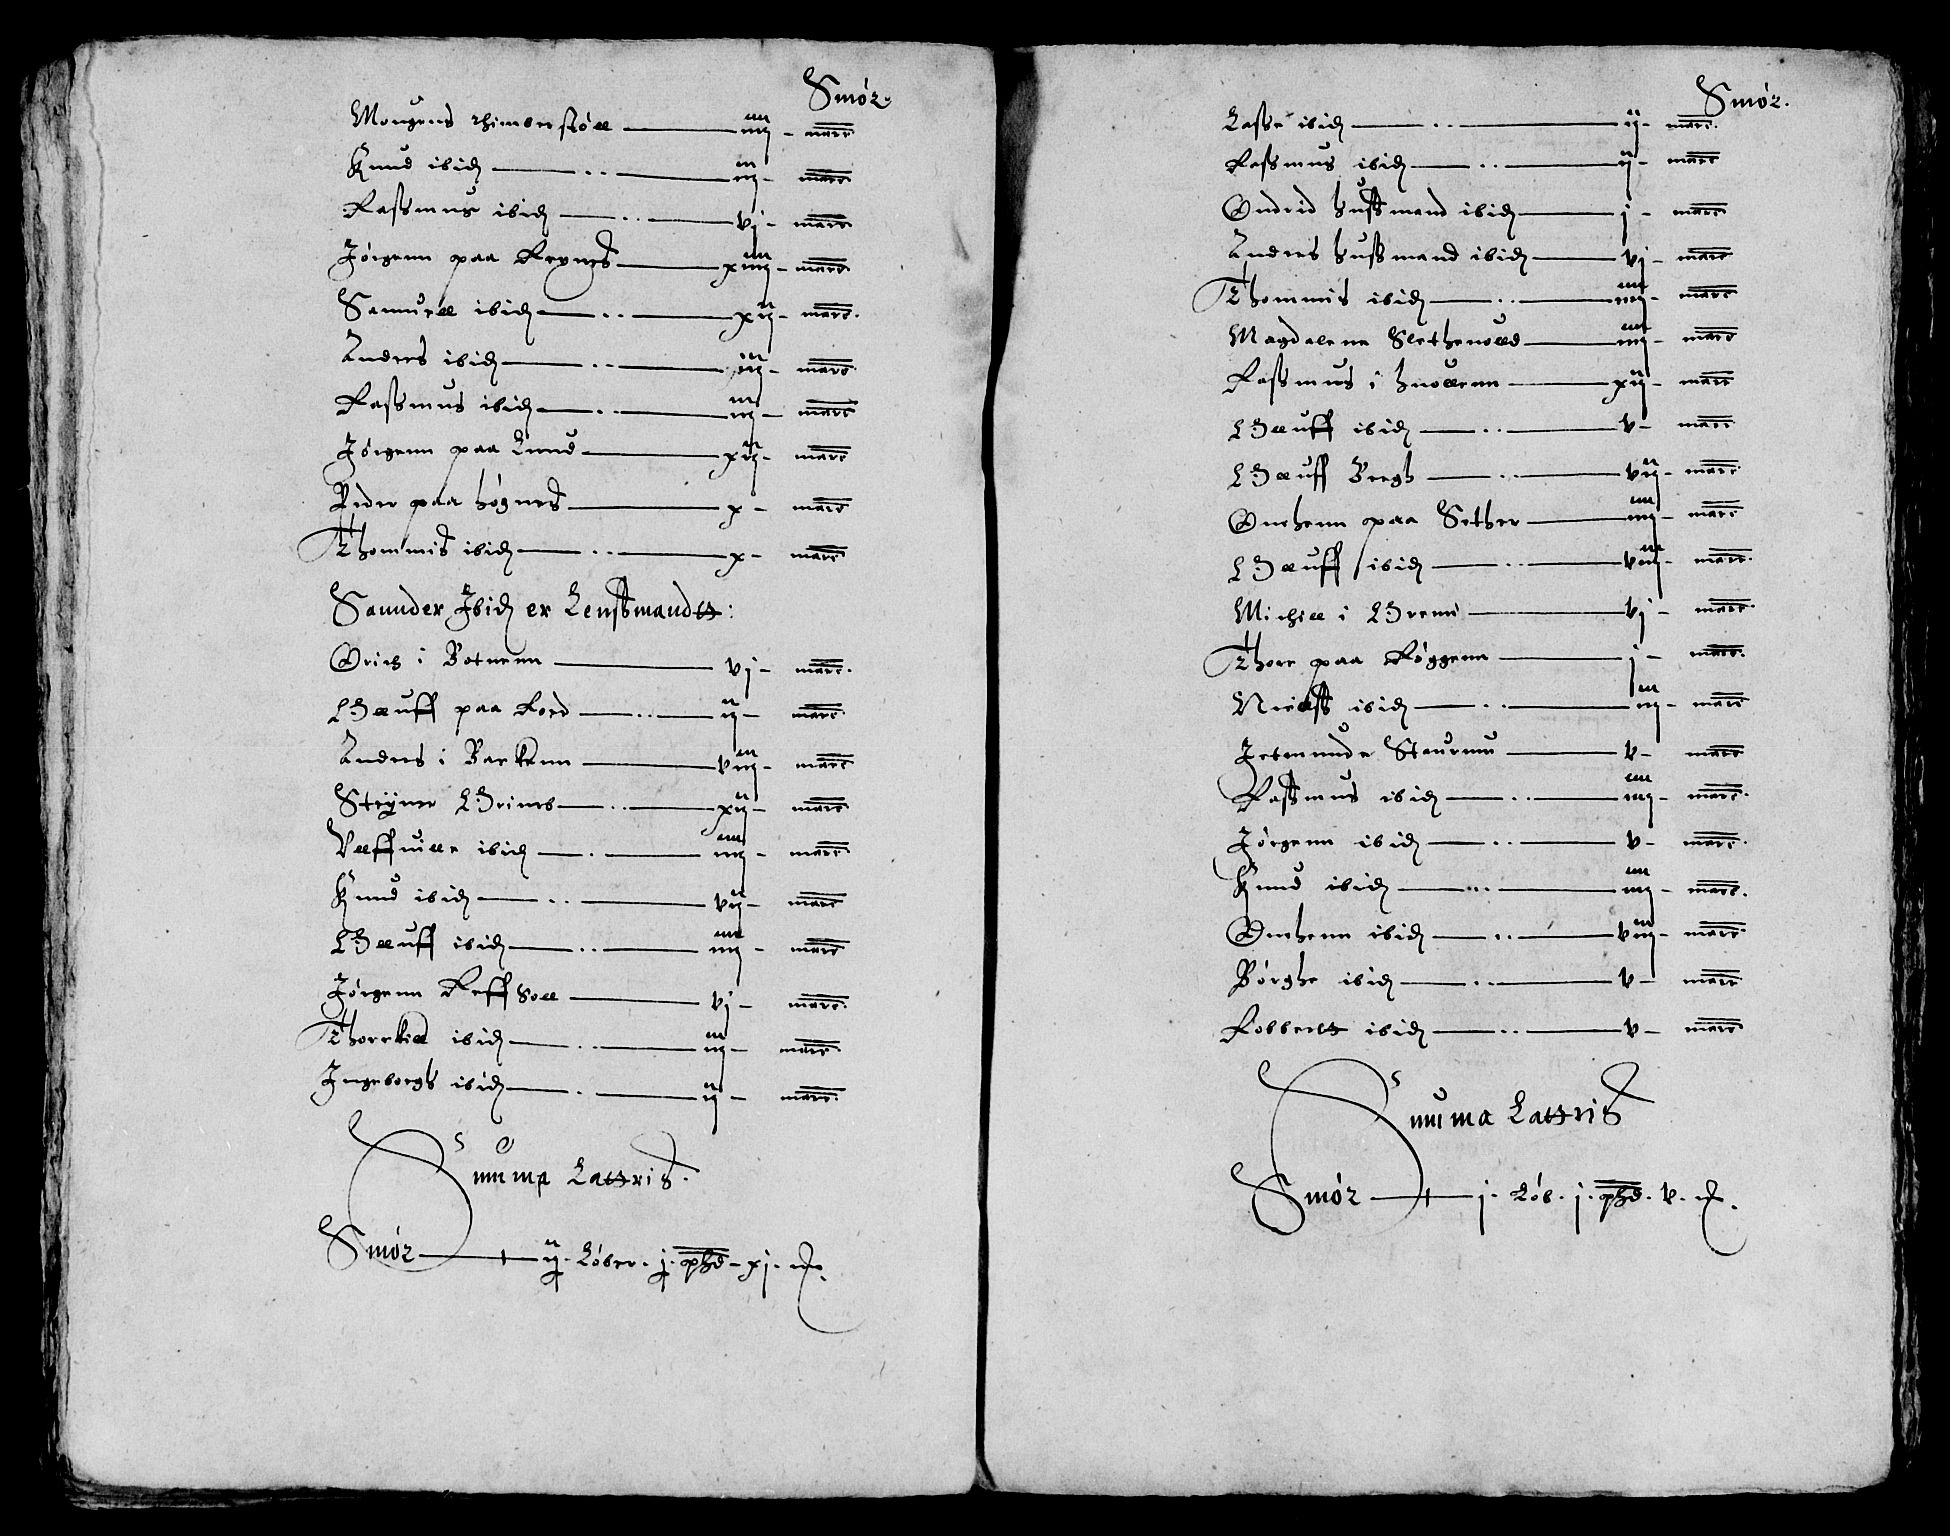 Smör.
Mougens thimberstöll — iiij — marc
Knud ibid — iij — marc
Rassmus ibid — vj — marc
Jörgenn paa Reyness — xiiij — marc
Samuell ibid — xij — marc.
Anders ibid — iij — marc
Rassmus ibid — iij — marc
Jörgenn paa Lund — xij — marc
Peder paa högness — x — marc
Thommis ibid — x — marc
Saunder Ibid er Lenssmandtt:
Erich i Botnenn — vj — marc.
Oluff paa Ford — ij — marc
Anders i Backenn — viij — marc
Steyner — xij — marc
ibid — iiij — marc
Knud ibid — vij — marc
Oluff ibid — iiij — marc
Jörgenn Reffsoll — vj — marc.
Thorckild ibid — iij — marc.
Ingeborgh ibid — ij — marc.
Summa Lattris.
Smör — ij. Löber. j. phd — xj. mr.
Smör.
Lasse ibid — ij — marc.
Rassmus ibid — ij — marc
Endrid hussmand ibid — j — marc
Anders hussmand ibid — vj — marc
Thommis ibid — iiij — marc
Magdalena Slethenolld — iiij — marc
Rassmus i huollenn — xij — marc
Oluff ibid — v — marc
Oluff Bergh — vij — marc
Enchenn paa Sether — iiij — marc
Oluff ibid — viij — marc.
Michill i — vj — marc
Thore paa Röggenn — j — marc.
Nielss ibid — iij — marc
Jetmunde — v — marc
Rassmus ibid — iiij — marc.
Jörgenn ibid — v — marc.
Knud ibid — iiij — marc.
Enchenn ibid — viij — marc
Börghe ibid — v — marc
Robbertt ibid — v — marc
Summa Lattris
Smör — j. Löb. j. phd. v. mr.